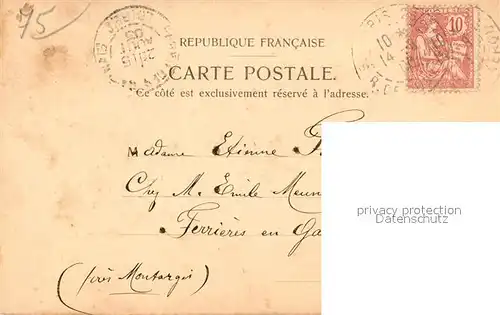 75
RÉPUBLIQUE FRANÇAISE
10
CARTE POSTALE.
Ce côté est exclusivement réservé à l'adresse.
Madame Etienne
Chez M. Emile Meun
Ferrières en Ga
(près Montargis)
privacy protection
Datenschutz